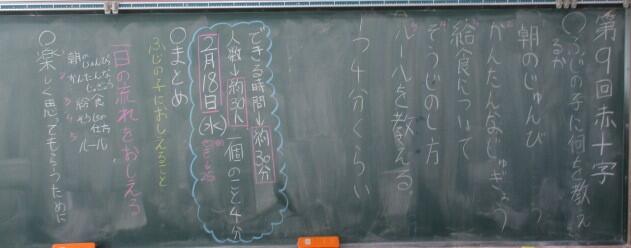 第9回赤十字
○ふじの子に何を教え
るか
朝のじゅんび
かんたんなじゅぎょう
給食について
そうじのし方
ルールを教える
一つ4分くらい
できる時間→約30分
人数→約30人 一個のこと4分
2月18日(水)
○まとめ
ふじの子におしえること
一日の流れをおしえる
朝のじゅんび
かんたんな
じゅぎょう
給食
そうじの仕方
ルール
○楽しく思ってもらうために